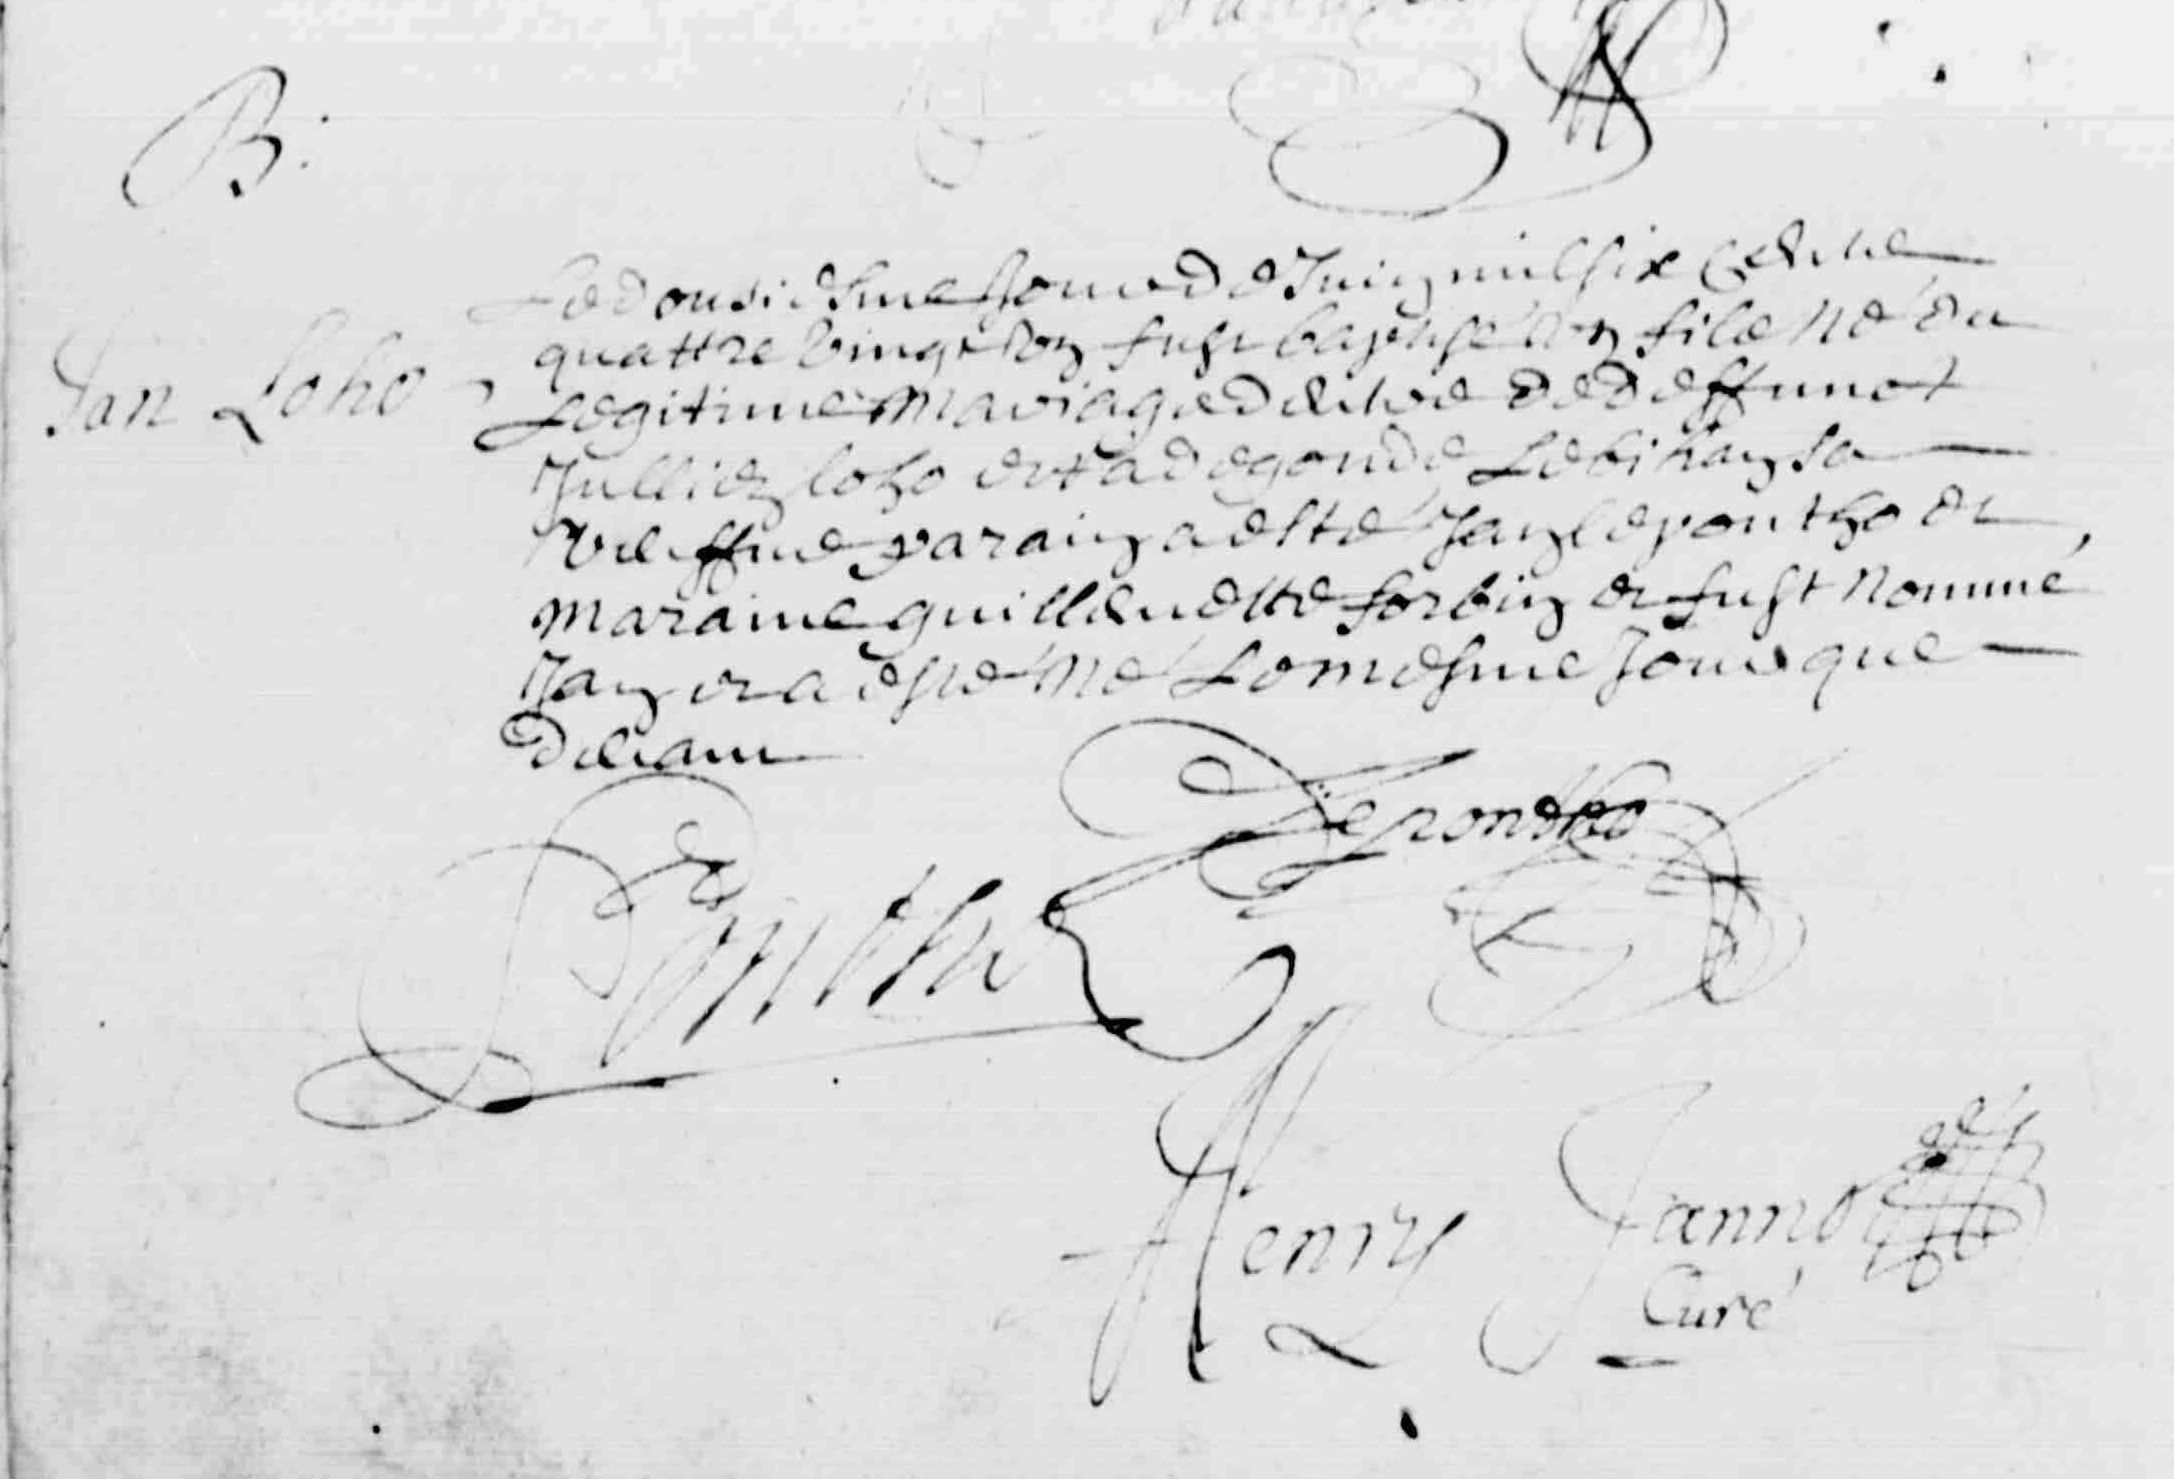 B.
Jan Loho
Le dousiesme Jour de Juin mil six Cent
quattre vingt un fust baptisé un fils né du
Legitime mariage d'entre de deffunct
Jullien loho et Radegonde Lebihan sa
veuffve parain a esté Jan lepontho et
maraine guillemette forbin et fust nommé
Jan et a esté né Le mesme Jour que
devant
Leponttho
Pontho
Henry Janno
Curé